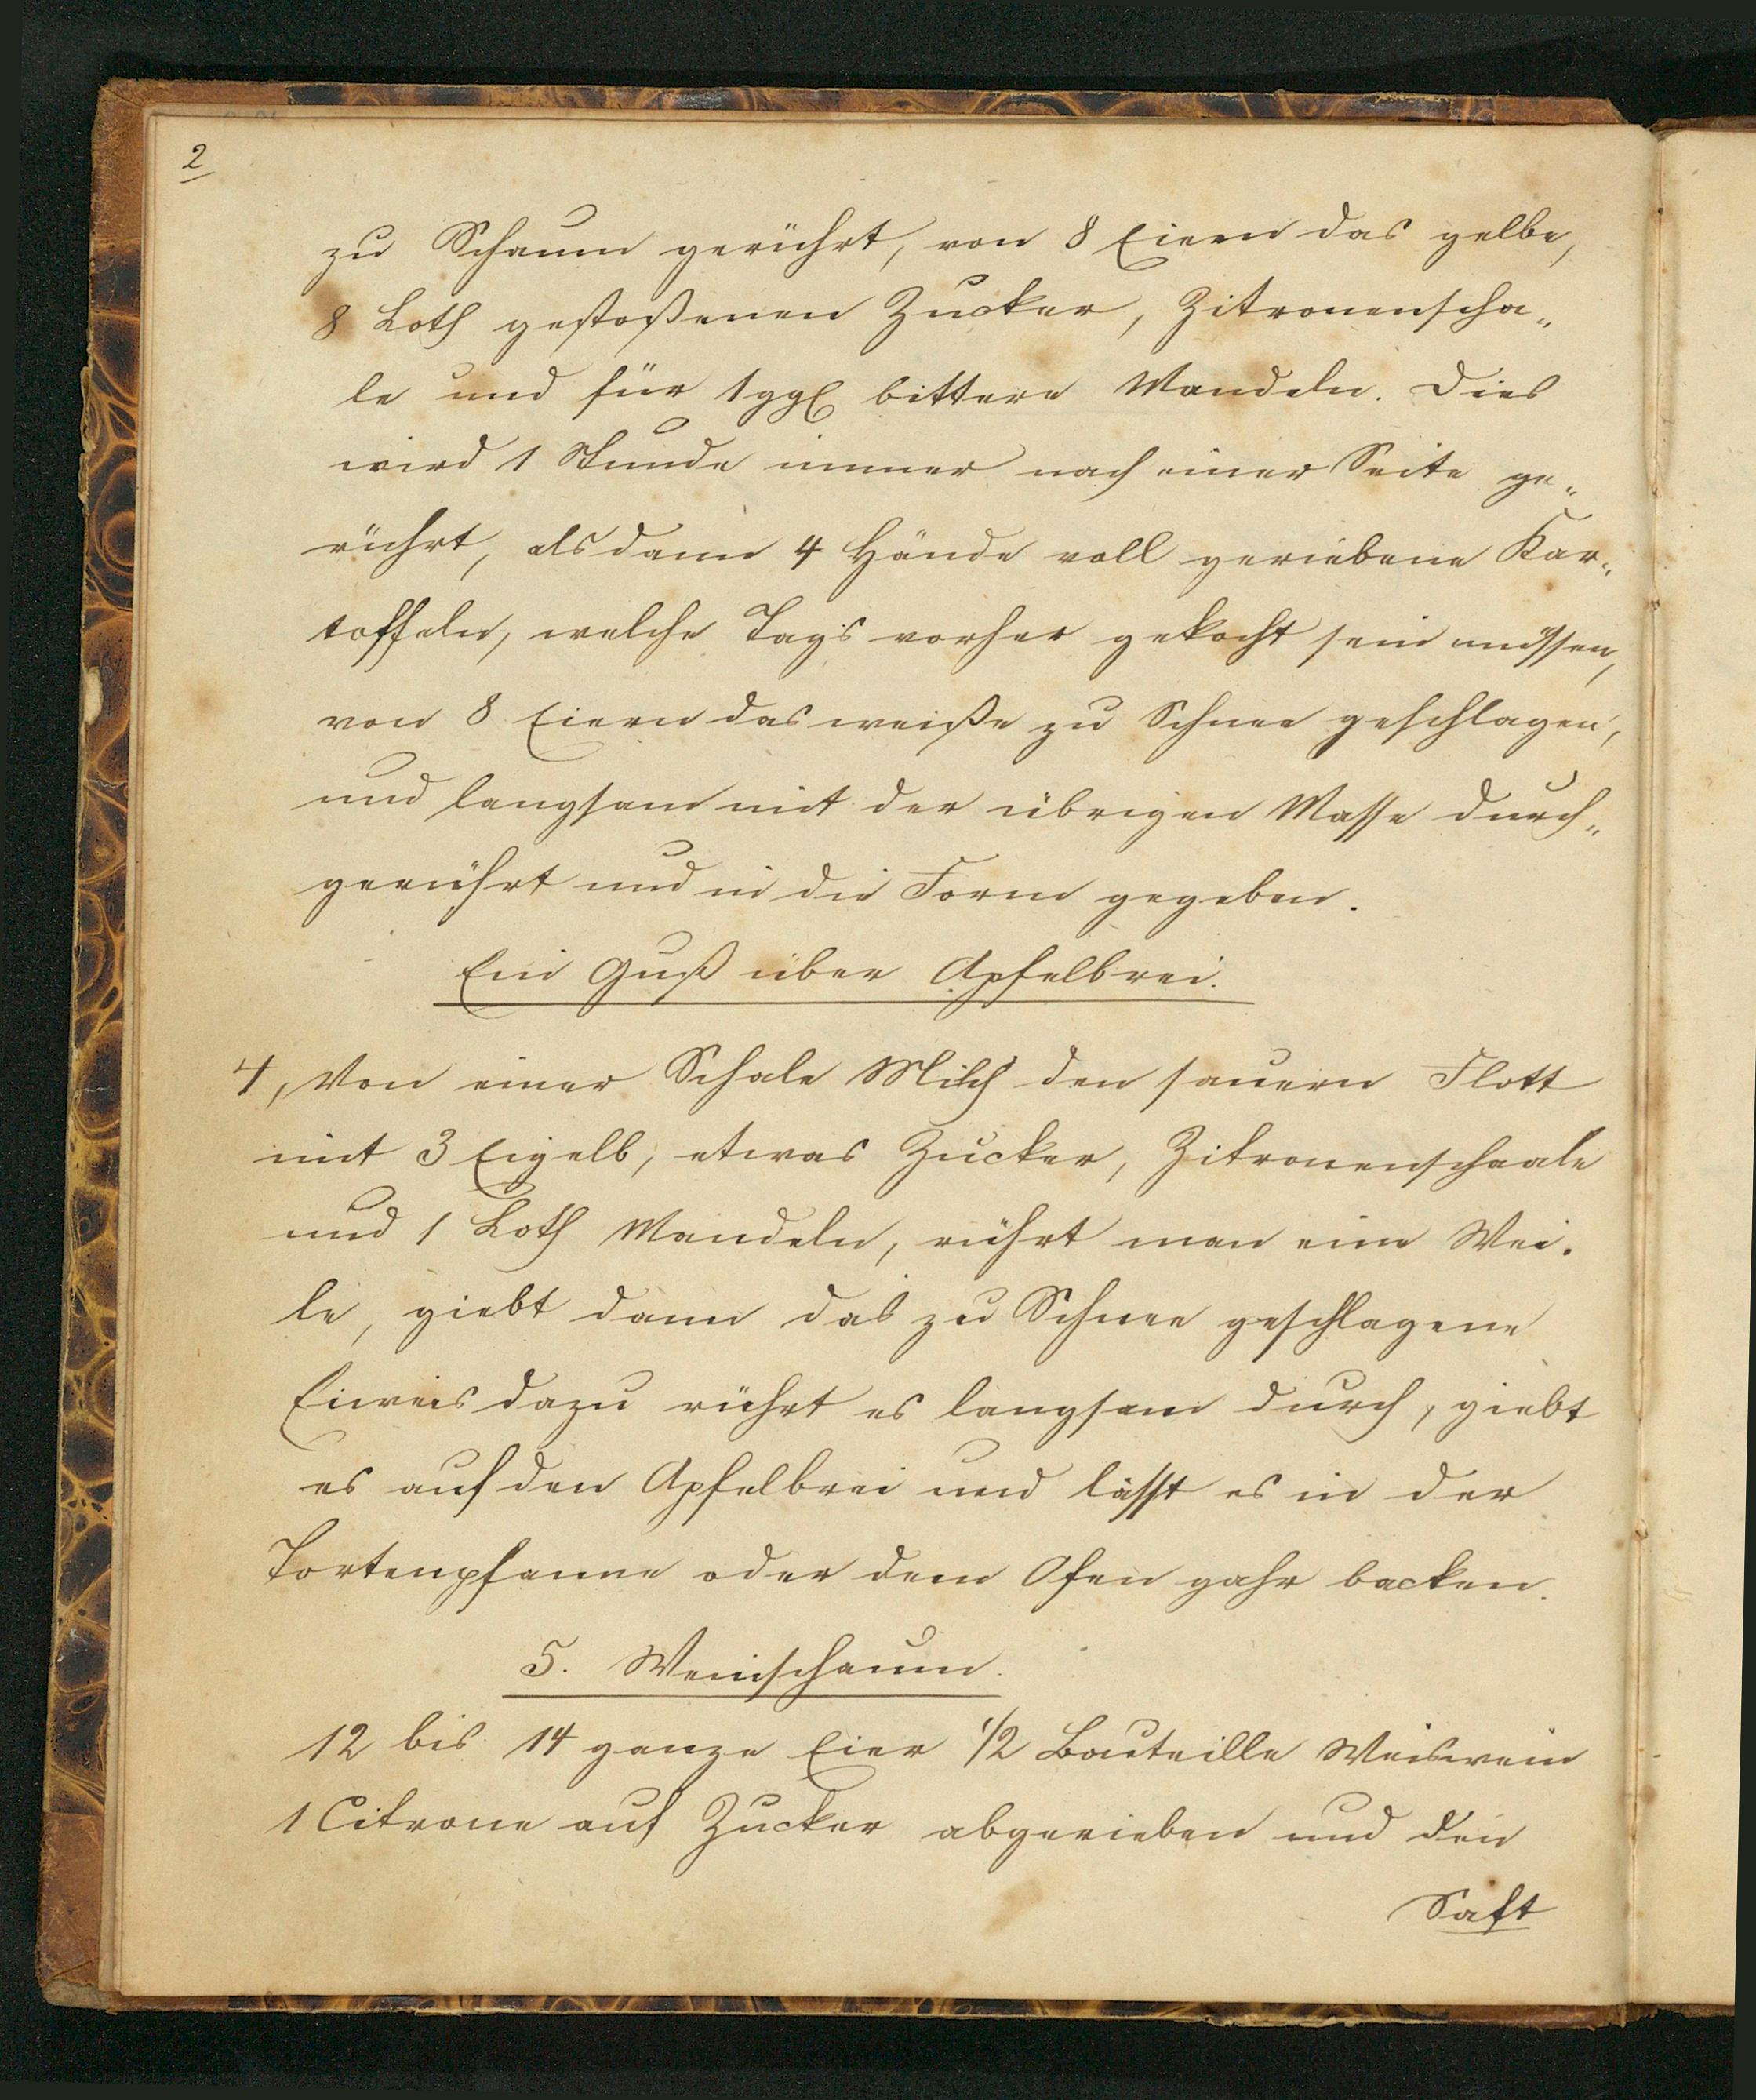 2
zu Schaum gerührt, von 8 Eiern das gelbe,
8 Loth gestoßenen Zucker, Zitronenscha„
le und für 1 ggl bittere Mandeln. Dies
wird 1 Stunde immer nach einer Seite ge„
rührt, alsdann 4 Hände voll geriebene Kar„
toffeln, welche Tags vorher gekocht sein müssen,
von 8 Eiern das weiße zu Schnee geschlagen,
und langsam mit der übrigen Masse durch„
gerührt und in die Form gegeben.
Ein Guß über Apfelbrei.
4, Von einer Schale Milch den sauern Flott
mit 3 Eigelb, etwas Zucker, Zitronenschaale
und 1 Loth Mandeln, rührt man eine Wei.
le, giebt dann das zu Schnee geschlagene
Eiweis dazu rührt es langsam durch, giebt
es auf den Apfelbrei und lässt es in der
Tortenpfanne oder dem Ofen gahr backen.
5. Weinschaum.
12 bis 14 ganze Eier 1/2 Bouteille Weiswein
1 Citrone auf Zucker abgerieben und den
Saft